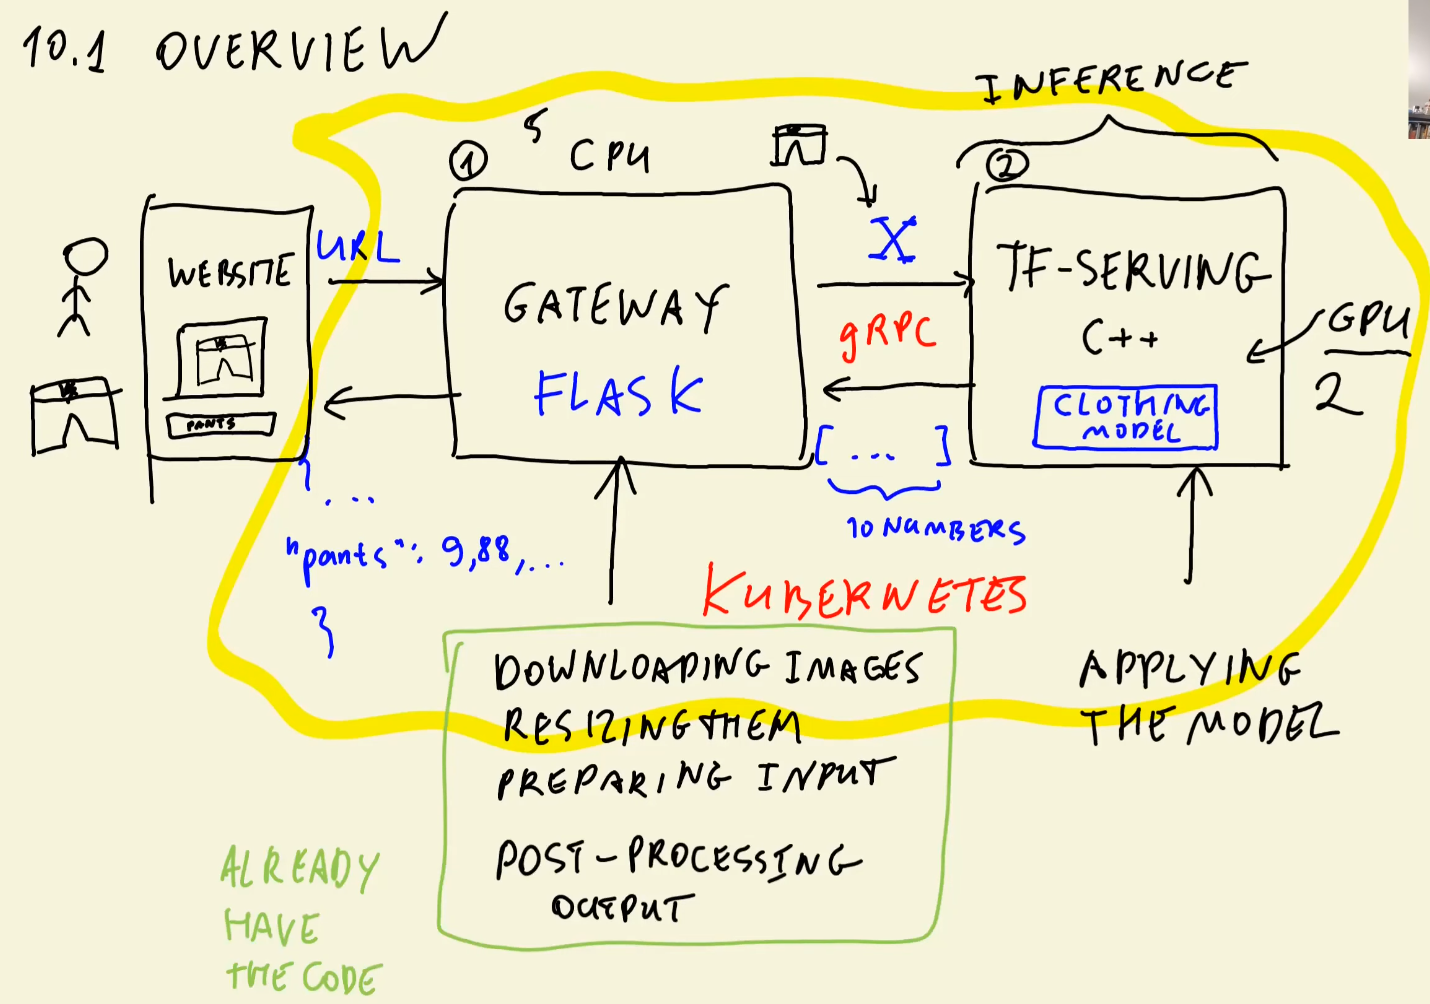 10.1 OVERVIEW
INFERENCE
5
CPU
1
2
URL
X
WEBSITE
PANTS
GATEWAY
FLASK
gRPC
TF-SERVING
C++
CLOTHING
MODEL
GPU
2
[ ... ]
10 NUMBERS
{ ...
"pants": 9,88,...
}
KUBERNETES
DOWNLOADING IMAGES
RESIZING THEM
PREPARING INPUT
POST-PROCESSING
OUTPUT
APPLYING
THE MODEL
ALREADY
HAVE
THE CODE